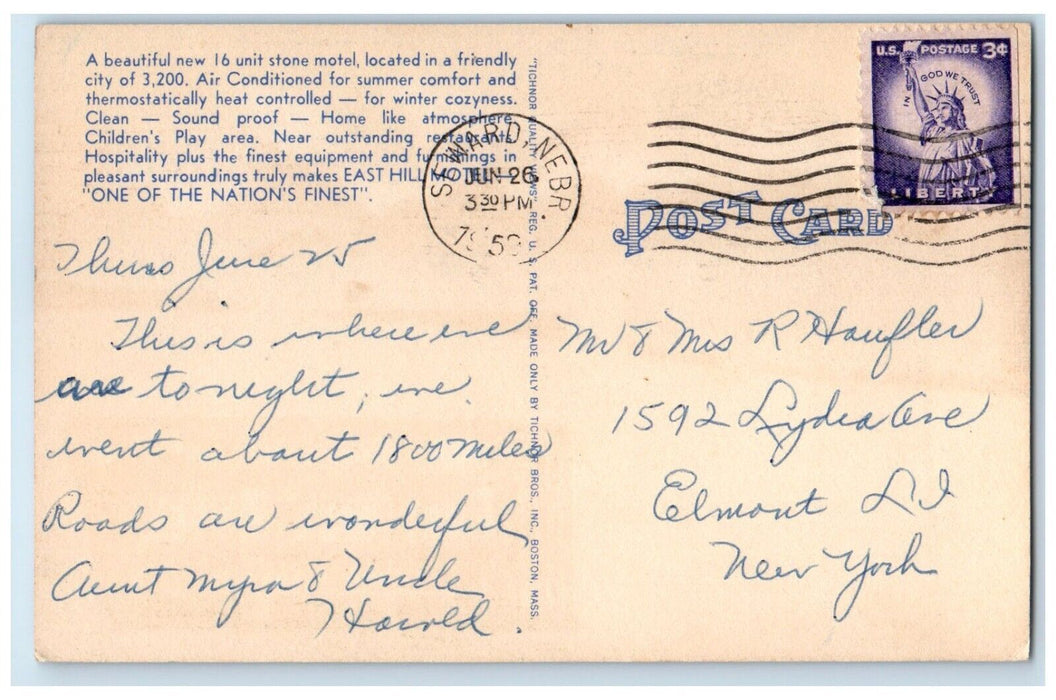 A beautiful new 16 unit stone motel, located in a friendly
city of 3,200. Air Conditioned for summer comfort and
thermostatically heat controlled — for winter cozyness.
Clean — Sound proof — Home like atmosphere
Children's Play area. Near outstanding restaurants.
Hospitality plus the finest equipment and furnishings in
pleasant surroundings truly makes EAST HILL MOTEL —
"ONE OF THE NATION'S FINEST".
SEWARD, NEBR.
JUN 26
3 30 PM
1959
U.S. POSTAGE 3¢
IN GOD WE TRUST
LIBERTY
POST CARD
"TICHNOR QUALITY VIEWS", REG. U. S. PAT. OFF. MADE ONLY BY TICHNOR BROS., INC., BOSTON, MASS.
Thurs June 25
This is where we
are tonight, we
went about 1800 miles
Roads are wonderful
Aunt Myra & Uncle
Harold.
Mr & Mrs R Haufler
1592 Lydia Ave
Elmont L I
New York